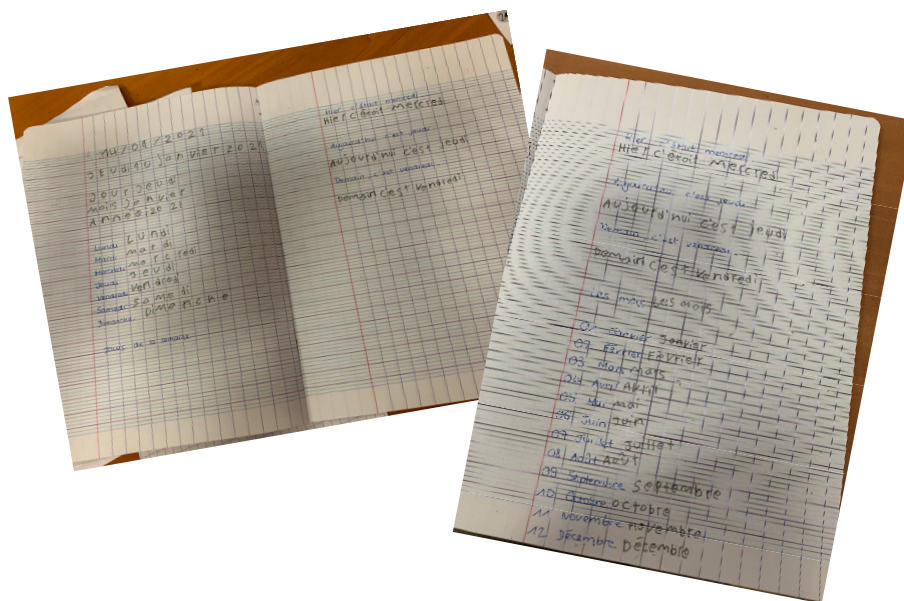 14/01/2021
Jeudi 14 janvier 2021
Jour jeudi
mois janvier
Année 2021
Lundi Lundi
Mardi mardi
Mercredi mercredi
Jeudi Jeudi
Vendredi vendredi
Samedi Samedi
Dimanche Dimanche
Jours de la semaine
Hier c'était mercredi
Hier c'étoit Mercredi
Aujourd'hui c'est jeudi
Aujourd'hui c'est jeudi
Demain c'est vendredi
Domain c'est vendredi
Hier c'était mercredi
Hier c'étoit Mercredi
Aujourd'hui c'est jeudi
Aujourd'hui c'est jeudi
Demain c'est vendredi
Domain c'est vendredi
Les mois Les mois
01 Janvier Janvier
02 Février Février
03 Mars mars
04 Avril Avril
05 Mai mai
06 Juin Juin
07 Juillet Juillet
08 Août Août
09 Septembre Septembre
10 Octobre octobre
11 Novembre novembre
12 Décembre Décembre